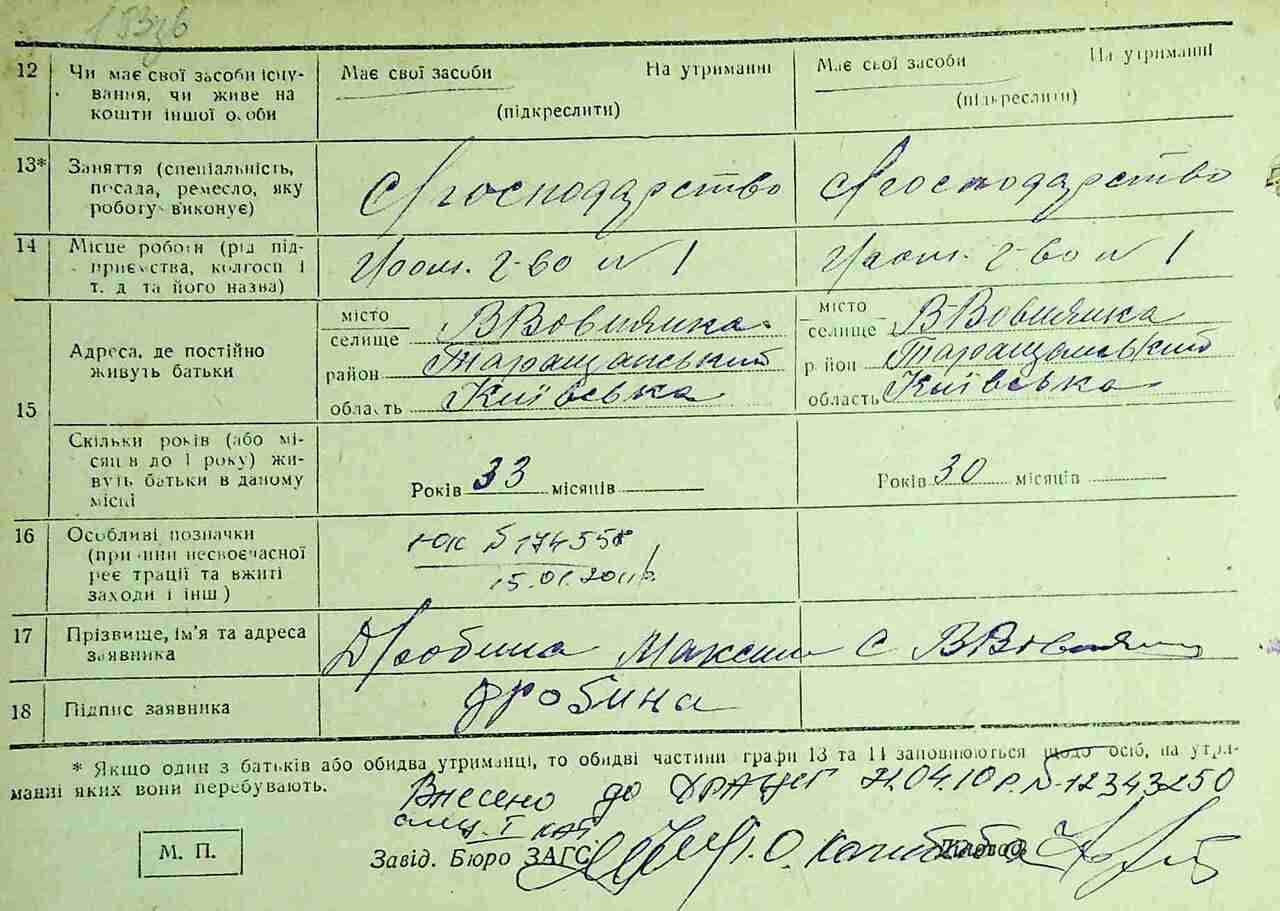 12 Чи має свої засоби існу- Має свої засоби На утриманні Має свої засоби На утриманні
вання, чи живе на
кошти іншої особи (підкреслити) (підкреслити)
13* Заняття (спеціальність,
посада, ремесло, яку господарство господарство
роботу виконує)
14 Місце роботи (рід під-
приємства, колгосп і г-во № 1 г-во № 1
т. д та його назва)
місто місто
селище В Вовнянка селище В-Вовнянка
Адреса, де постійно
живуть батьки район Таращанський район Таращанський
15 область Київська область Київська
Скільки років (або мі-
сяців до 1 року) жи-
вуть батьки в даному Років 33 місяців Років 30 місяців
місці
16 Особливі позначки
(причини несвоєчасної № 174558
реєстрації та вжиті 15.01.2011р.
заходи і інш)
17 Прізвище, ім'я та адреса Дробина Максим с ВВовнянка
заявника
18 Підпис заявника Дробина
* Якщо один з батьків або обидва утриманці, то обидві частини графи 13 та 14 заповнюються щодо осіб, на утри-
манні яких вони перебувають.
Внесено до ДРАЦСГ 21.04.10р. №12343250
спец. І кат
М. П. Завід. Бюро ЗАГС Діловод